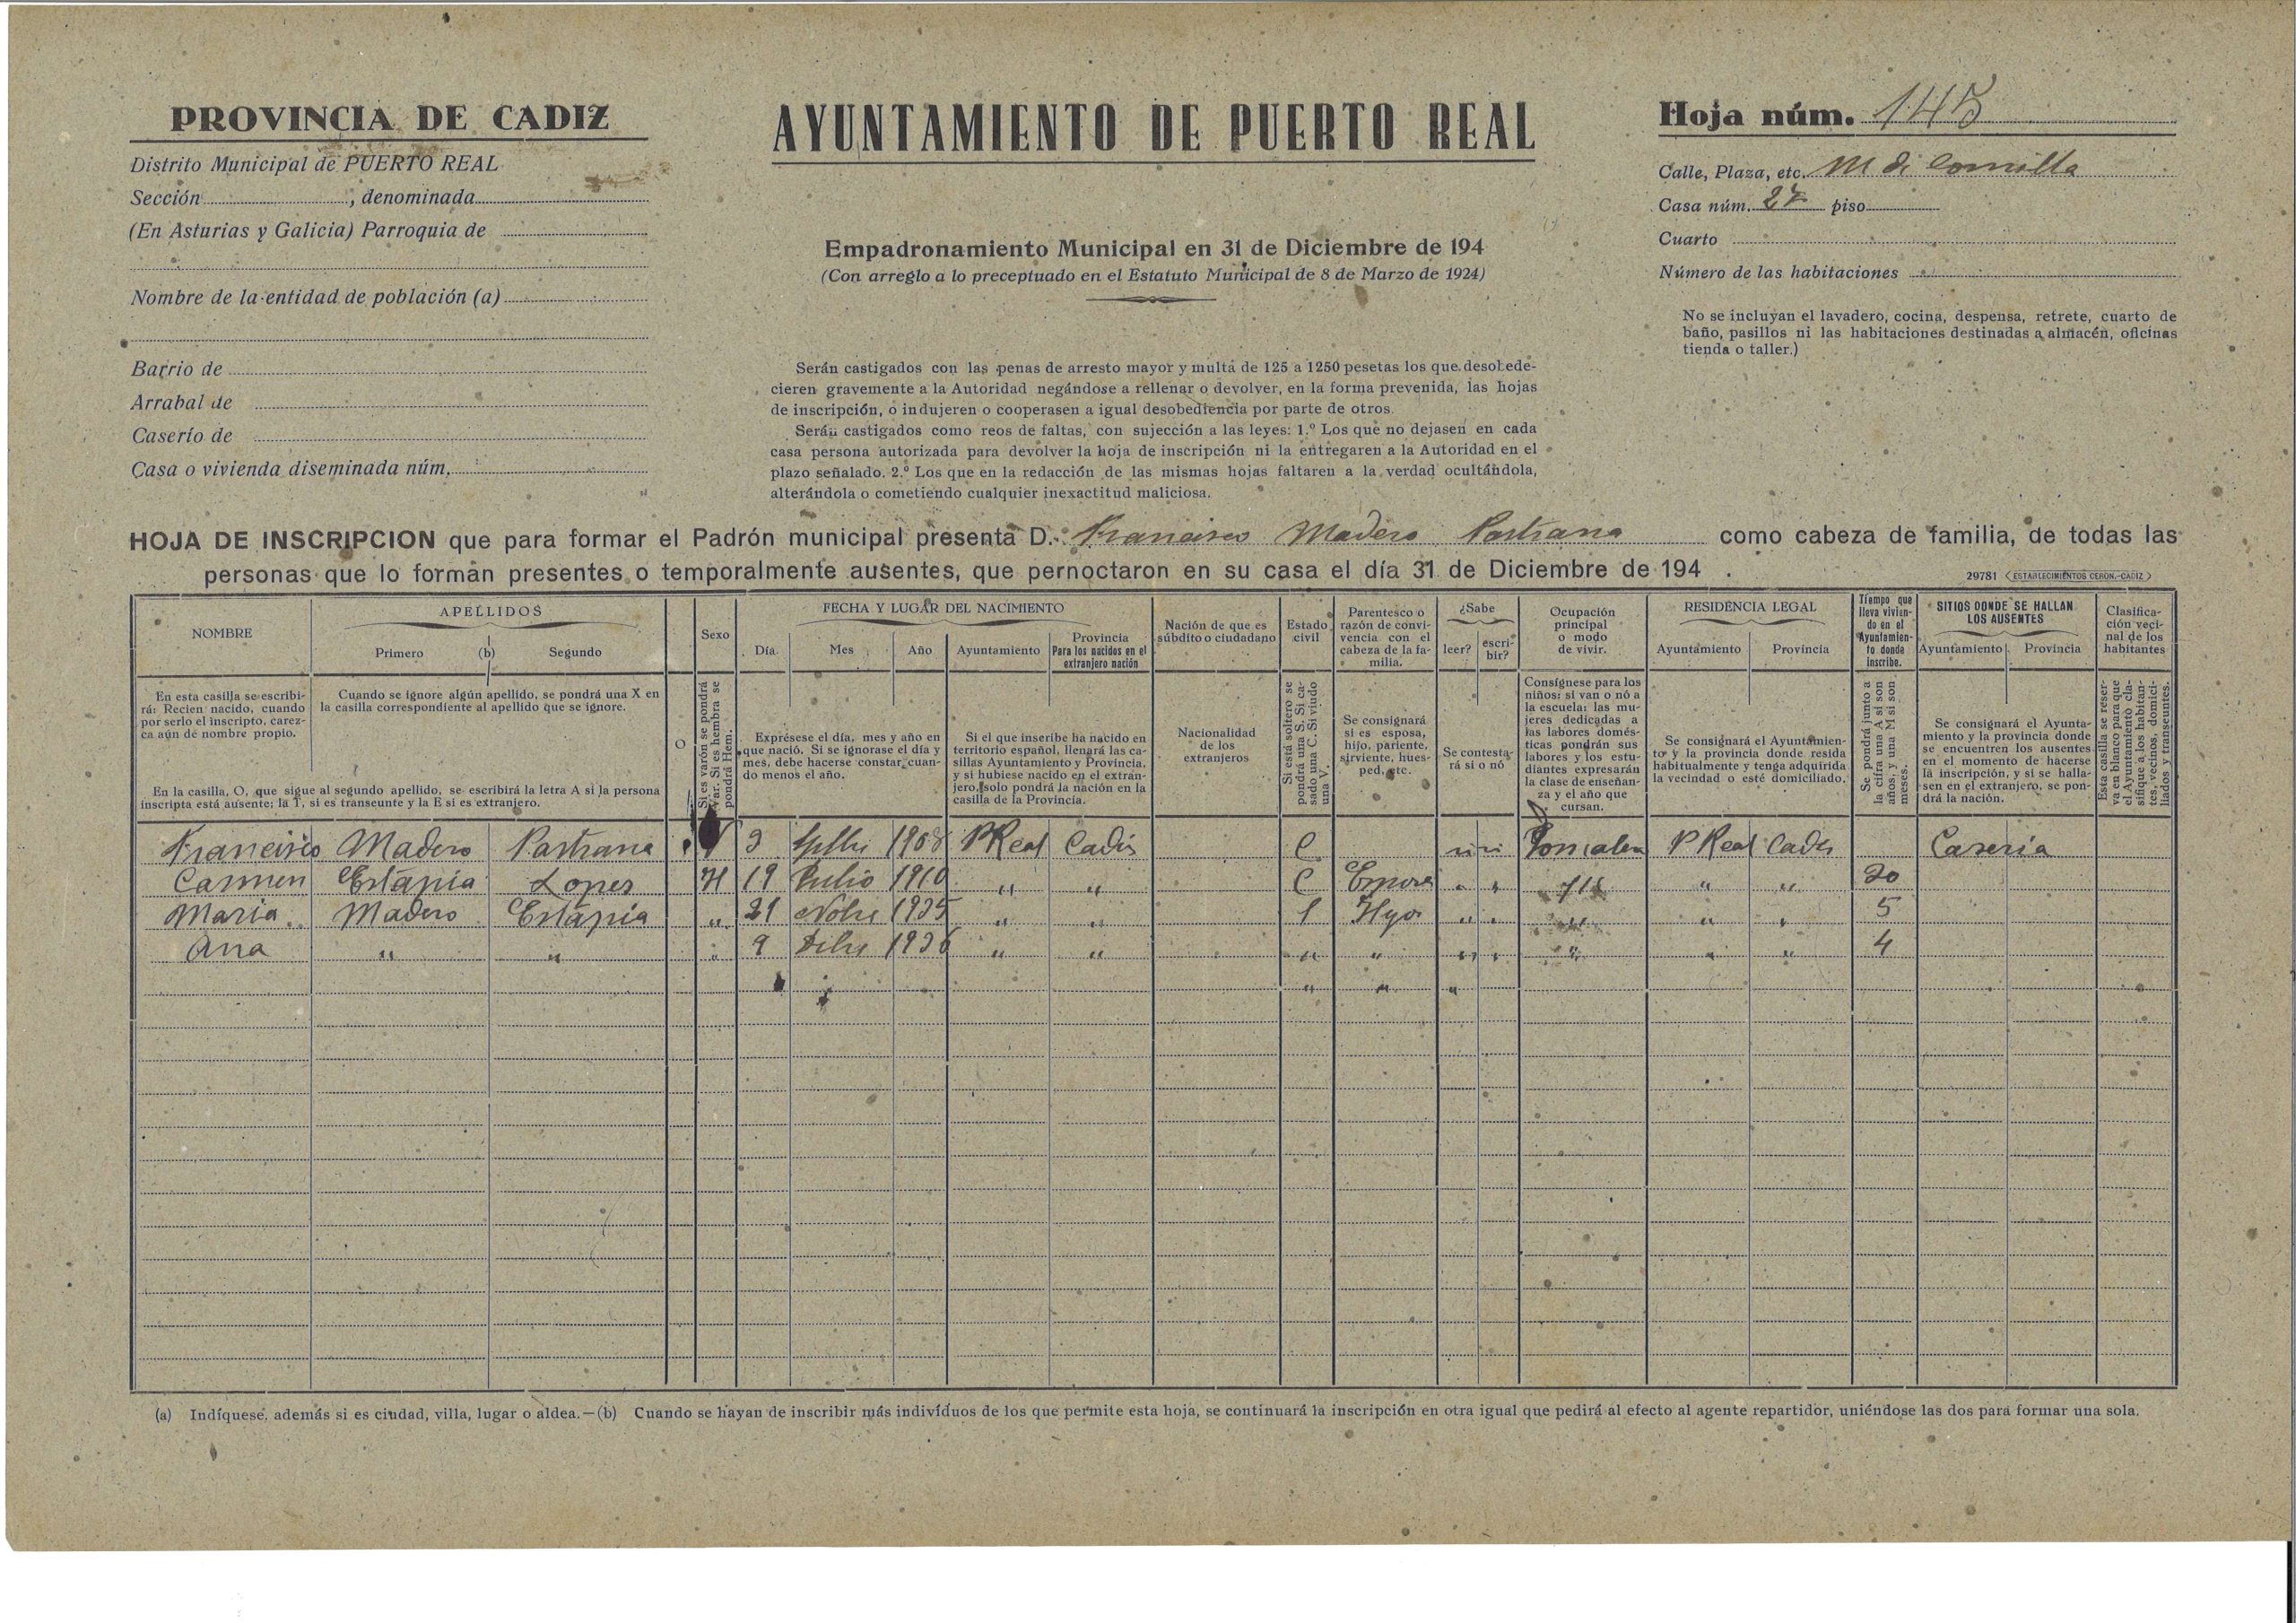 PROVINCIA DE CADIZ
Distrito Municipal de PUERTO REAL
Sección , denominada
(En Asturias y Galicia) Parroquia de
Nombre de la entidad de población (a)
Barrio de
Arrabal de
Caserío de
Casa o vivienda diseminada núm.
AYUNTAMIENTO DE PUERTO REAL
Empadronamiento Municipal en 31 de Diciembre de 194
(Con arreglo a lo preceptuado en el Estatuto Municipal de 8 de Marzo de 1924)
Serán castigados con las penas de arresto mayor y multa de 125 a 1250 pesetas los que desobede-
cieren gravemente a la Autoridad negándose a rellenar o devolver, en la forma prevenida, las hojas
de inscripción, o indujeren o cooperasen a igual desobediencia por parte de otros.
Serán castigados como reos de faltas, con sujección a las leyes: 1.º Los que no dejasen en cada
casa persona autorizada para devolver la hoja de inscripción ni la entregaren a la Autoridad en el
plazo señalado. 2.º Los que en la redacción de las mismas hojas faltaren a la verdad ocultándola,
alterándola o cometiendo cualquier inexactitud maliciosa.
Hoja núm. 145
Calle, Plaza, etc. M di Comilla
Casa núm. 27 piso
Cuarto
Número de las habitaciones
No se incluyan el lavadero, cocina, despensa, retrete, cuarto de
baño, pasillos ni las habitaciones destinadas a almacén, oficinas
tienda o taller.)
HOJA DE INSCRIPCION que para formar el Padrón municipal presenta D. Francisco Madero Pastrana como cabeza de familia, de todas las
personas que lo forman presentes o temporalmente ausentes, que pernoctaron en su casa el día 31 de Diciembre de 194 .
29781 (ESTABLECIMIENTOS CERON.-CADIZ)
NOMBRE
APELLIDOS
Primero (b) Segundo
O
Sexo
FECHA Y LUGAR DEL NACIMIENTO
Día Mes Año Ayuntamiento
Provincia
Para los nacidos en el
extranjero nación
Nación de que es
súbdito o ciudadano
Estado
civil
Parentesco o
razón de convi-
vencia con el
cabeza de la fa-
milia.
¿Sabe
leer? escri-
bir?
Ocupación
principal
o modo
de vivir.
RESIDENCIA LEGAL
Ayuntamiento Provincia
Tiempo que
lleva vivien-
do en el
Ayuntamien-
to donde
inscribe.
SITIOS DONDE SE HALLAN
LOS AUSENTES
Ayuntamiento Provincia
Clasifica-
ción veci-
nal de los
habitantes
En esta casilla se escribi-
rá: Recien nacido, cuando
por serlo el inscripto, carez-
ca aún de nombre propio.
Cuando se ignore algún apellido, se pondrá una X en
la casilla correspondiente al apellido que se ignore.
En la casilla, O, que sigue al segundo apellido, se escribirá la letra A si la persona
inscripta está ausente; la T, si es transeunte y la E si es extranjero.
Si es varón se pondrá
Var. Si es hembra se
pondrá Hem.
Expresese el día, mes y año en
que nació. Si se ignorase el día y
mes, debe hacerse constar cuan-
do menos el año.
Si el que inseribe ha nacido en
territorio español, llenará las ca-
sillas Ayuntamiento y Provincia,
y si hubiese nacido en el extran-
jero, solo pondrá la nación en la
casilla de la Provincia.
Nacionalidad
de los
extranjeros
Si está soltero se
pondrá una S. Si ca-
sado una C. Si viudo
una V.
Se consignará
si es esposa,
hijo, pariente,
sirviente, hues-
ped, etc.
Se contesta-
rá si o nó
Consígnese para los
niños: si van o nó a
la escuela: las mu-
jeres dedicadas a
las labores domés-
ticas pondrán sus
labores y los estu-
diantes expresarán
la clase de enseñan-
za y el año que
cursan.
Se consignará el Ayuntamien-
to y la provincia donde resida
habitualmente y tenga adquirida
la vecindad o esté domiciliado.
Se pondrá junto a
la cifra una A si son
años, y una M si son
meses.
Se consignará el Ayunta-
miento y la provincia donde
se encuentren los ausentes
en el momento de hacerse
la inscripción, y si se halla-
sen en el extranjero, se pon-
drá la nación.
Esta casilla se reser-
va en blanco para que
el Ayuntamiento cla-
sifique a los habitan-
tes, vecinos, domici-
liados y transeuntes.
Francisco Madero Pastrana V 3 1908 P Real Cadis C si si P Real Cadis Caseria
Carmen Estapia Lopes H 19 Julio 1910 " " C Esposa " " " " 20
Maria Madero Estapia " 21 Nobre 1935 " " S Hija " " " " " 5
Ana " " " 9 1936 " " " " " " " " " 4
" " "
(a) Indíquese, además si es ciudad, villa, lugar o aldea.—(b) Cuando se hayan de inscribir más indivíduos de los que permite esta hoja, se continuará la inscripción en otra igual que pedirá al efecto al agente repartidor, uniéndose las dos para formar una sola.